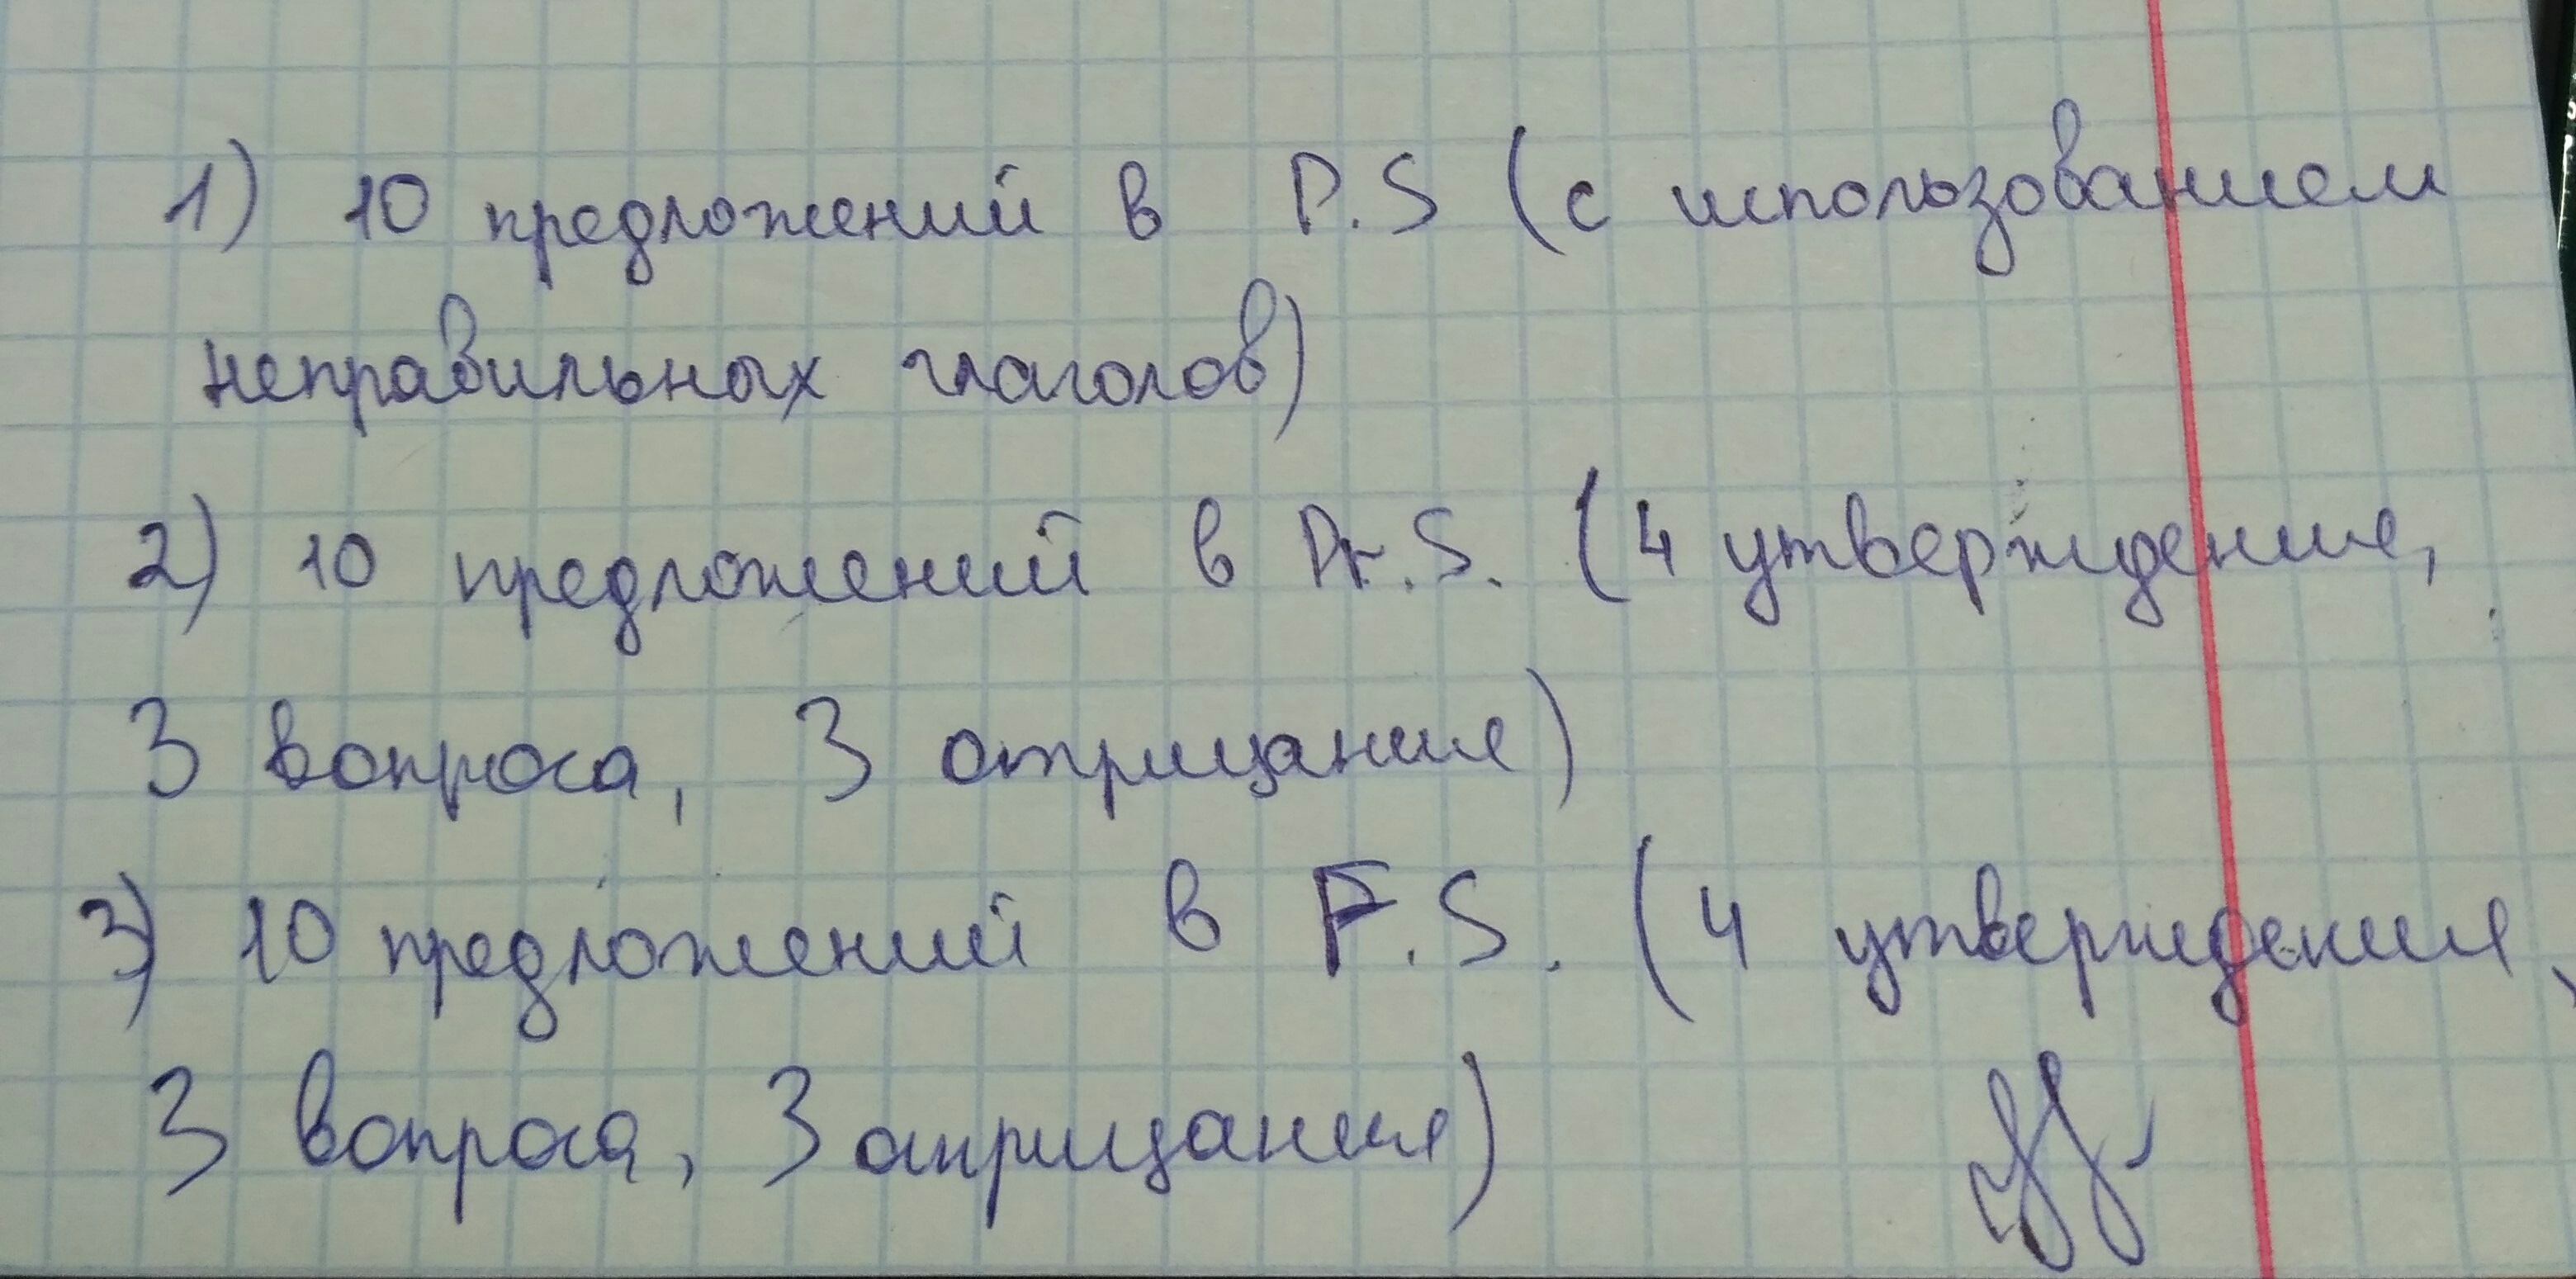 1) 10 предложений в P.S (с использованием
неправильных глаголов)
2) 10 предложений в Pr.S. (4 утверждение,
3 вопроса, 3 отрицание)
3) 10 предложений в F.S. (4 утверждения,
3 вопроса, 3 отрицания)